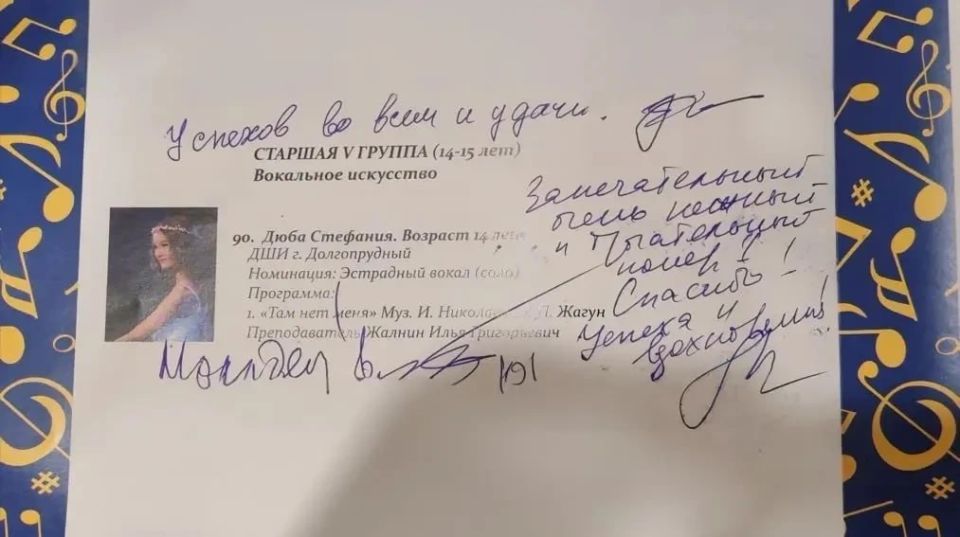 Успехов во всем и удачи.
СТАРШАЯ V ГРУППА (14-15 лет)
Вокальное искусство
Замечательный
очень нежный
и
номер!
Спасибо!
Успеха и
вдохновения!
90. Дюба Стефания. Возраст 14 лет
ДШИ г. Долгопрудный
Номинация: Эстрадный вокал (соло)
Программа:
1. «Там нет меня» Муз. И. Никола Л. Жагун
Преподаватель Жалнин Илья Григорьевич
Молодец